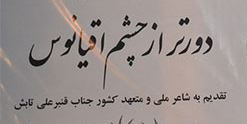 دورتر از چشم اقیانوس
تقدیم به شاعر ملی و متعهد کشور جناب قنبرعلی تابش